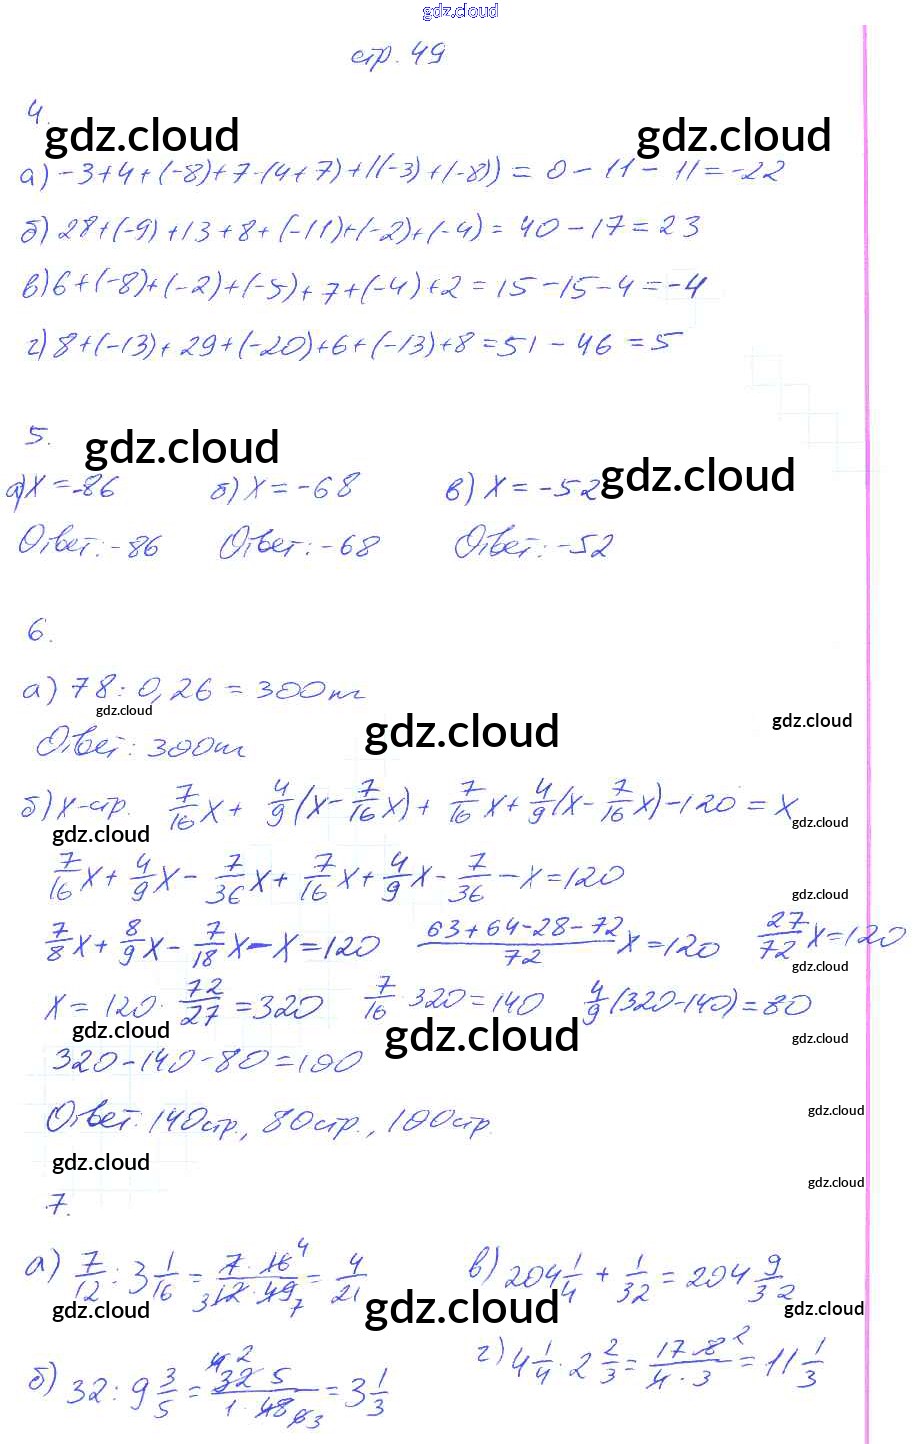 gdz.cloud
стр. 49
4.
gdz.cloud gdz.cloud
а) -3+4+(-8)+7-(4+7)+((-3)+(-8)) = 0 - 11 - 11 = -22
б) 28+(-9)+13+8+(-11)+(-2)+(-4) = 40 - 17 = 23
в) 6+(-8)+(-2)+(-5)+7+(-4)+2 = 15 - 15 - 4 = -4
г) 8+(-13)+29+(-20)+6+(-13)+8 = 51 - 46 = 5
5.
gdz.cloud gdz.cloud
а) x = -86 б) x = -68 в) x = -52
Ответ: -86 Ответ: -68 Ответ: -52
6.
а) 78 : 0,26 = 300т
gdz.cloud gdz.cloud gdz.cloud
Ответ: 300т
б) x-стр. 7/16 x + 4/9 (x - 7/16 x) + 7/16 x + 4/9 (x - 7/16 x) - 120 = x
gdz.cloud gdz.cloud
7/16 x + 4/9 x - 7/36 x + 7/16 x + 4/9 x - 7/36 - x = 120
gdz.cloud
7/8 x + 8/9 x - 7/18 x - x = 120 (63+64-28-72)/72 x = 120 27/72 x = 120
gdz.cloud
x = 120 · 72/27 = 320 7/16 · 320 = 140 4/9 (320-140) = 80
gdz.cloud gdz.cloud gdz.cloud
320 - 140 - 80 = 100
Ответ: 140стр., 80стр., 100стр.
gdz.cloud
gdz.cloud gdz.cloud
7.
а) 7/12 : 3 1/16 = (7 · 16 4)/(3 12 · 49 7) = 4/21 в) 204 1/4 + 1/32 = 204 9/32
gdz.cloud gdz.cloud gdz.cloud
б) 32 : 9 3/5 = (4 2 32 5)/(1 · 48 6 3) = 3 1/3 г) 4 1/4 · 2 2/3 = (17 · 8 2)/(4 · 3) = 11 1/3